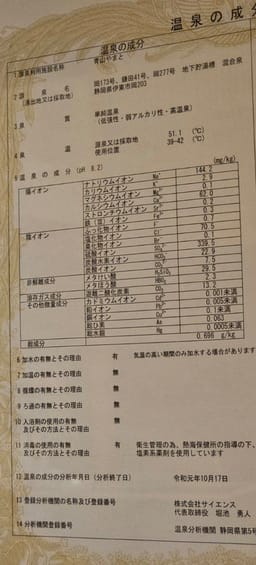 温泉の成分
温泉の成分
1 源泉利用施設名称 青山やまと
2 源泉名 岡173号、鎌田41号、岡277号 地下貯湯槽 混合泉
(湧出地又は採取地) 静岡県伊東市岡203
3 泉質 単純温泉
(低張性・弱アルカリ性・高温泉)
4 泉温 源泉又は採取地 51.1 (℃)
使用位置 39-42 (℃)
5 温泉の成分 (pH 8.2) (mg/kg)
陽イオン ナトリウムイオン Na⁺ 144.2
カリウムイオン K⁺ 2.9
マグネシウムイオン Mg²⁺ 0.1
カルシウムイオン Ca²⁺ 62.0
ストロンチウムイオン Sr²⁺ 0.2
鉄(Ⅱ)イオン Fe²⁺
陰イオン ふっ化物イオン F⁻
塩化物イオン Cl⁻ 70.5
臭化物イオン Br⁻ 0.1
硫酸イオン SO₄²⁻ 339.5
炭酸水素イオン HCO₃⁻ 22.9
炭酸イオン CO₃²⁻ 7.5
非解離成分 メタけい酸 H₂SiO₃ 29.5
メタほう酸 HBO₂ 2.3
溶存ガス成分 遊離二酸化炭素 CO₂ 13.2
その他微量成分 カドミウムイオン Cd²⁺ 0.001未満
鉛イオン Pb²⁺ 0.005未満
銅イオン Cu²⁺ 0.1未満
総ひ素 As 0.063
総水銀 Hg 0.0005未満
総成分 0.696 g/kg
6 加水の有無とその理由 有 気温の高い期間のみ加水する場合があります
7 加温の有無とその理由 無
8 循環の有無とその理由 無
9 ろ過の有無とその理由 無
10 入浴剤の使用の有無 無
及び方法とその理由
11 消毒の使用の有無 有 衛生管理の為、熱海保健所の指導の下、
及び方法とその理由 塩素系薬剤を使用しています
12 温泉の成分の分析年月日(分析終了日) 令和元年10月17日
13 登録分析機関の名称及び登録番号 株式会社サイエンス
代表取締役 堀池 勇人
14 分析機関登録番号 温泉分析機関 静岡県第5号